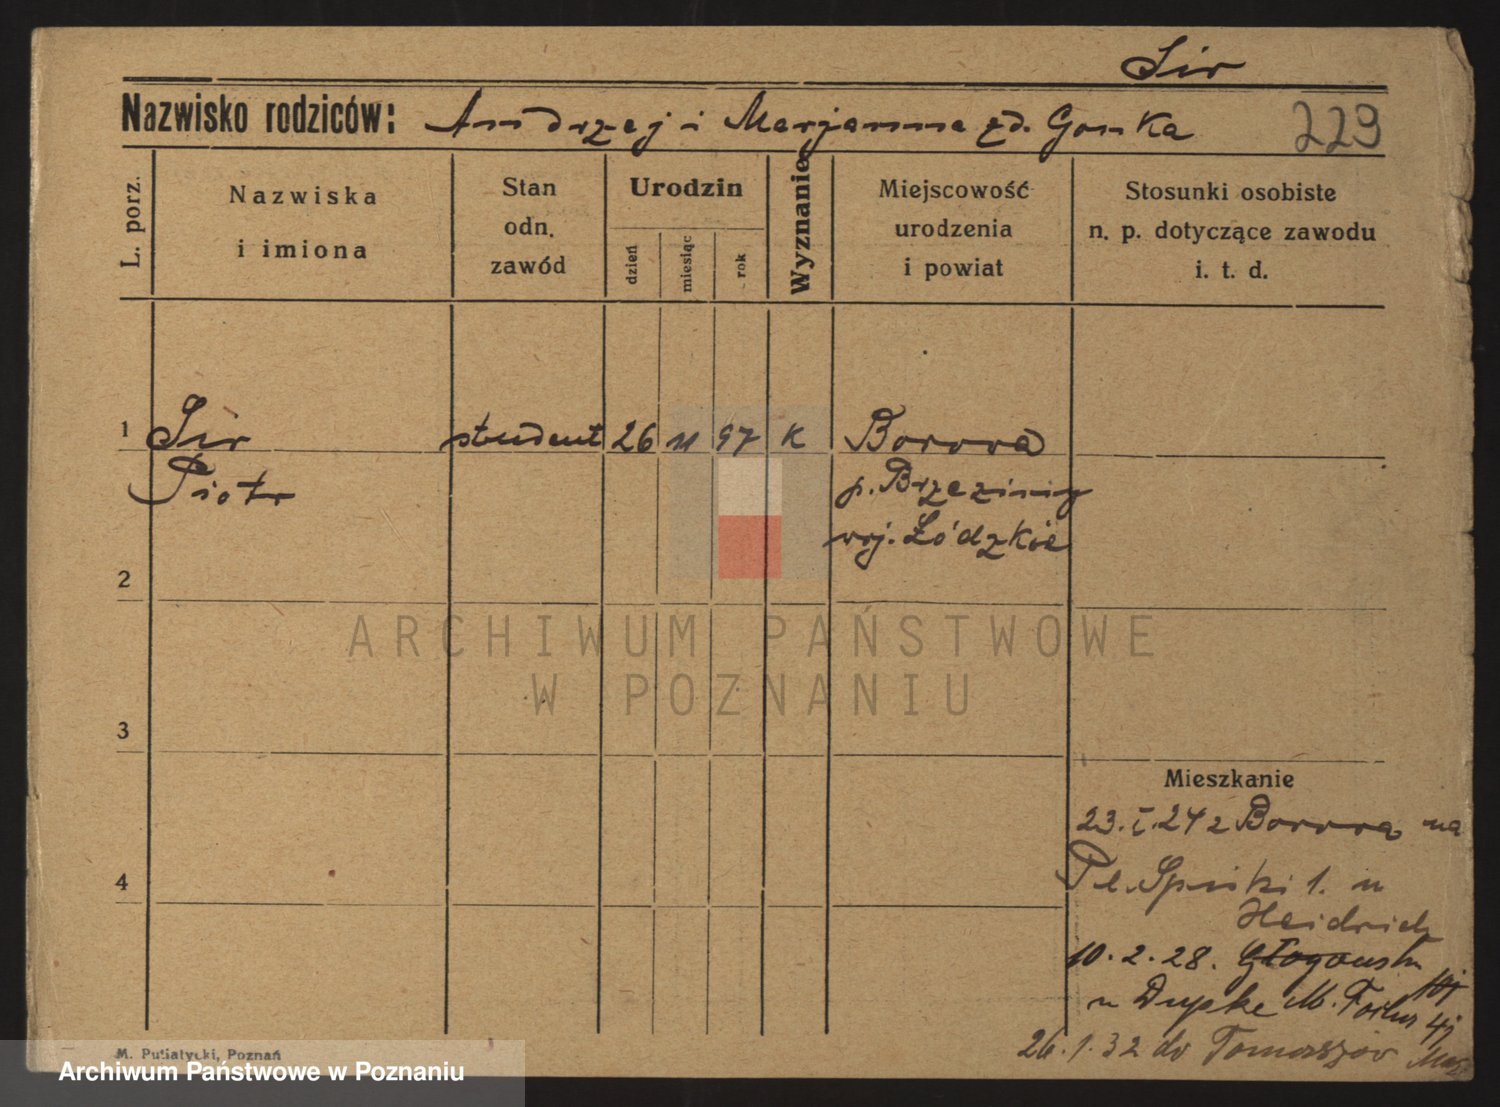 Sir
Nazwisko rodziców: Andrzej i Marjanna zd. Gonka 229
L. porz.
Nazwiska
i imiona
Stan
odn.
zawód
Urodzin
dzień
miesiąc
rok
Wyznanie
Miejscowość
urodzenia
i powiat
Stosunki osobiste
n. p. dotyczące zawodu
i. t. d.
1 Sir student 26 11 97 K Borowa
Piotr p. Brzeziny
woj. Łódzkie
2
ARCHIWUM PAŃSTWOWE
W POZNANIU
3
Mieszkanie
23. I. 24 z Borowa na
4 Pl. Spiski 1. u
Heidrich
10. 2. 28. Głogowska
u M.
26. 1. 32 do Tomaszów Maz
M. Putiatycki, Poznań
Archiwum Państwowe w Poznaniu